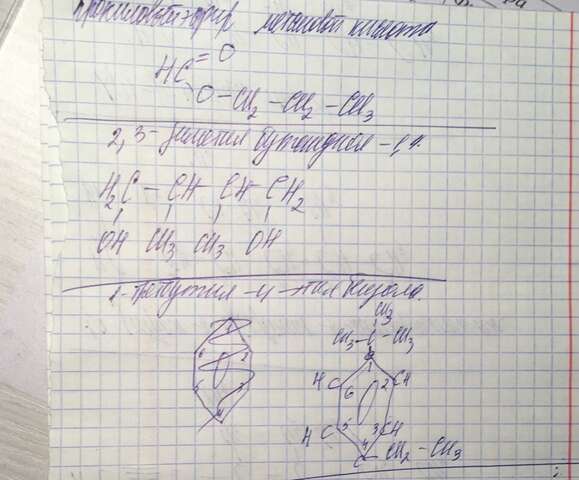 пропиловый эфир метановой кислоты
HC = O
O - CH2 - CH2 - CH3
2,3 - диметил бутандиол - 1,4.
H2C - CH - CH - CH2
OH CH3 CH3 OH
1 - третбутил - 4 - этил бензола.
CH3
CH3 - C - CH3
1
6 2
5 3
4
1
HC 6 2 CH
HC 5 3 CH
4
C - CH2 - CH3